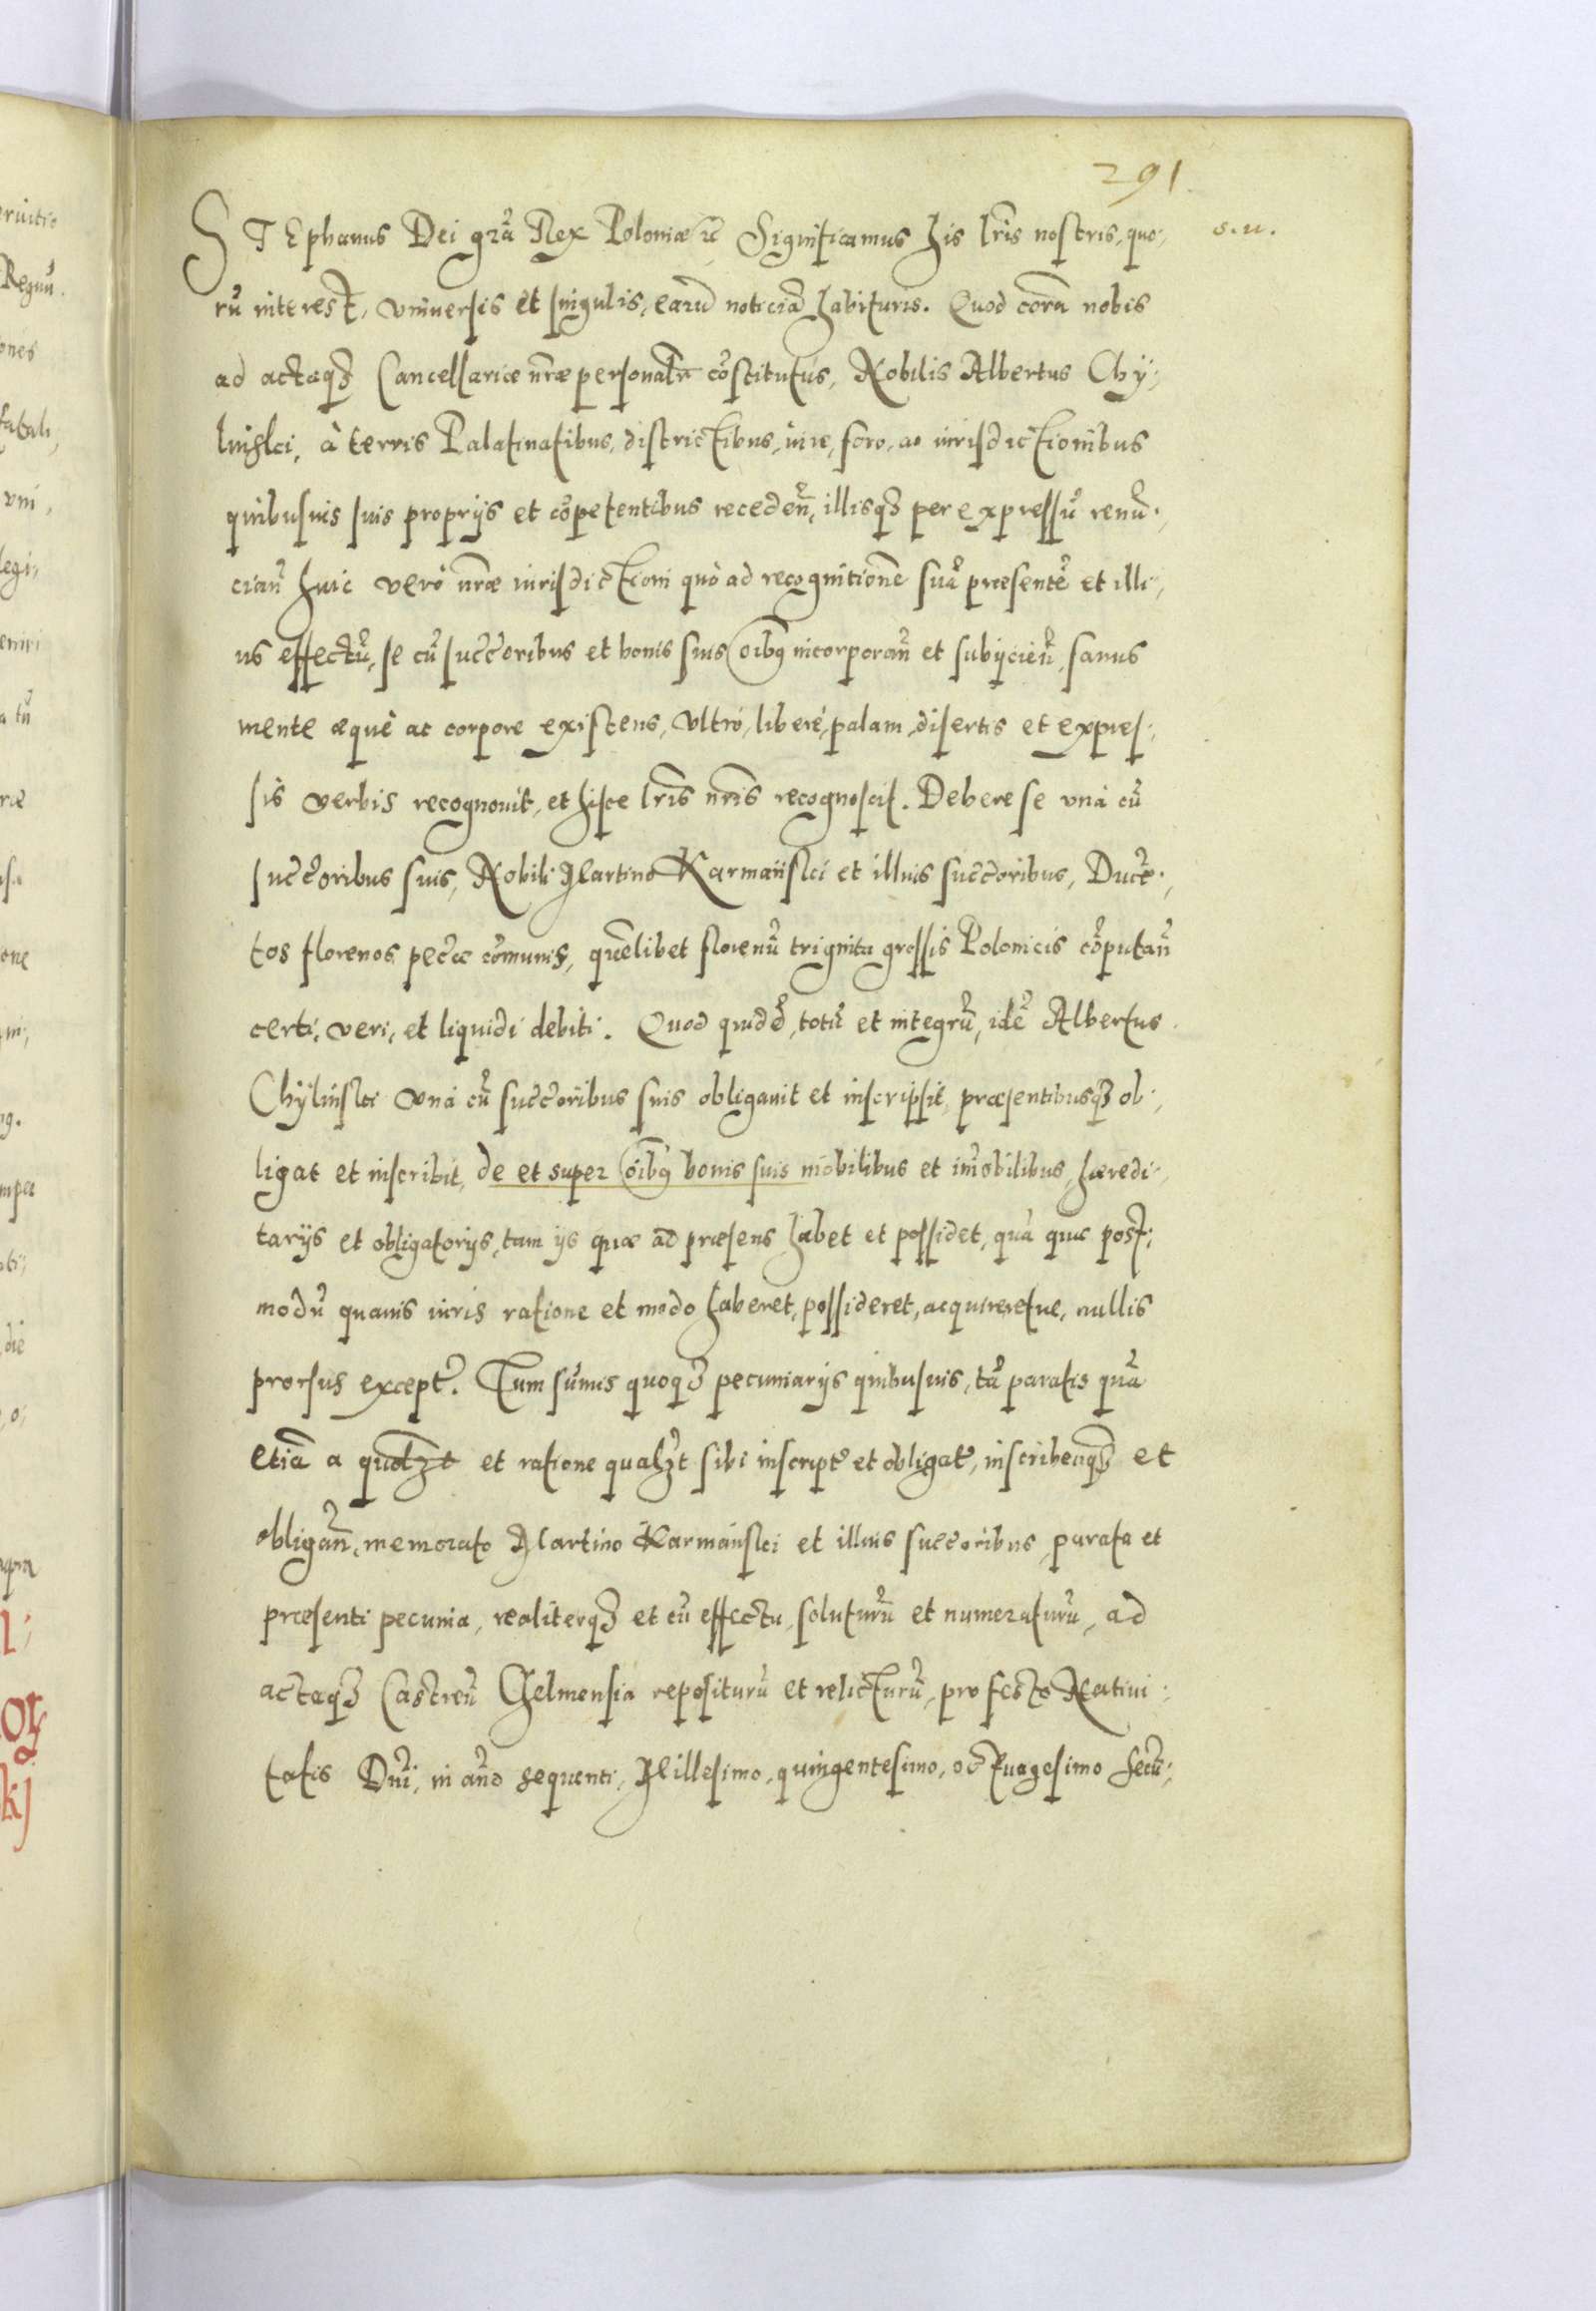 291
STEphanus Dei grã Rex Poloniæ ꝛc Significamus his lr̃is nostris, quo-
s. u.
rũ interest, vniuersis et singulis, earũ noticiã habituris. Quod corã nobis
ad actaqȝ Cancellariæ nr̃æ personalr̃ cõstitutus, Nobilis Albertus Chy-
linskci, à terris Palatinatibus, districtibus, iure, foro, ac iurisdictionibus
quibusuis suis proprijs et cõpetentibus recedeñ, illisqȝ per expressũ renũ-
ciañ huic verò nr̃æ iurisdictioni quò ad recognitionẽ suã præsentẽ et illi-
us effectũ, se cũ succ̃oribus et bonis suis oĩbꝯ incorporañ et subijcieñ, sanus
mente æquè ac corpore existens, vltrò, liberè, palam, disertis et expres-
sis verbis recognouit, et hisce lr̃is nr̃is recognoscit. Debere se vnà cũ
succ̃oribus suis, Nobili Martino Karmański et illius succ̃oribus, Ducẽ-
tos florenos pecc̃æ cõmunis, quẽlibet florenũ triginta grossis Polonicis cõputañ
certi, veri, et liquidi debiti. Quod quidẽ, totũ et integrũ, idẽ Albertus
Chyliński vnà cũ succ̃oribus suis obligauit et inscripsit, præsentibusqȝ ob-
ligat et inscribit, de et super oĩbꝯ bonis suis mobilibus et im̃obilibus, hæredi-
tarijs et obligatorijs, tam ijs quæ ad præsens habet et possidet, quã quæ post-
modũ quauis iuris ratione et modo haberet, possideret, acquireretue, nullis
prorsus except̃. Tum sũmis quoqȝ pecuniarijs quibusuis, tã paratis quã
etiã a quolȝt et ratione qualȝt sibi inscript̃ et obligat̃, inscribenqȝ et
obligañ, memorato Martino Karmański et illius succ̃oribus, parata et
præsenti pecunia, realiterqȝ et cũ effectu, soluturũ et numeraturũ, ad
actaqȝ Castreñ Chelmensia repositurũ et relicturũ, pro festo Natiui-
tatis Dñi, in ãno sequenti, Millesimo, quingentesimo, octuagesimo secũ-